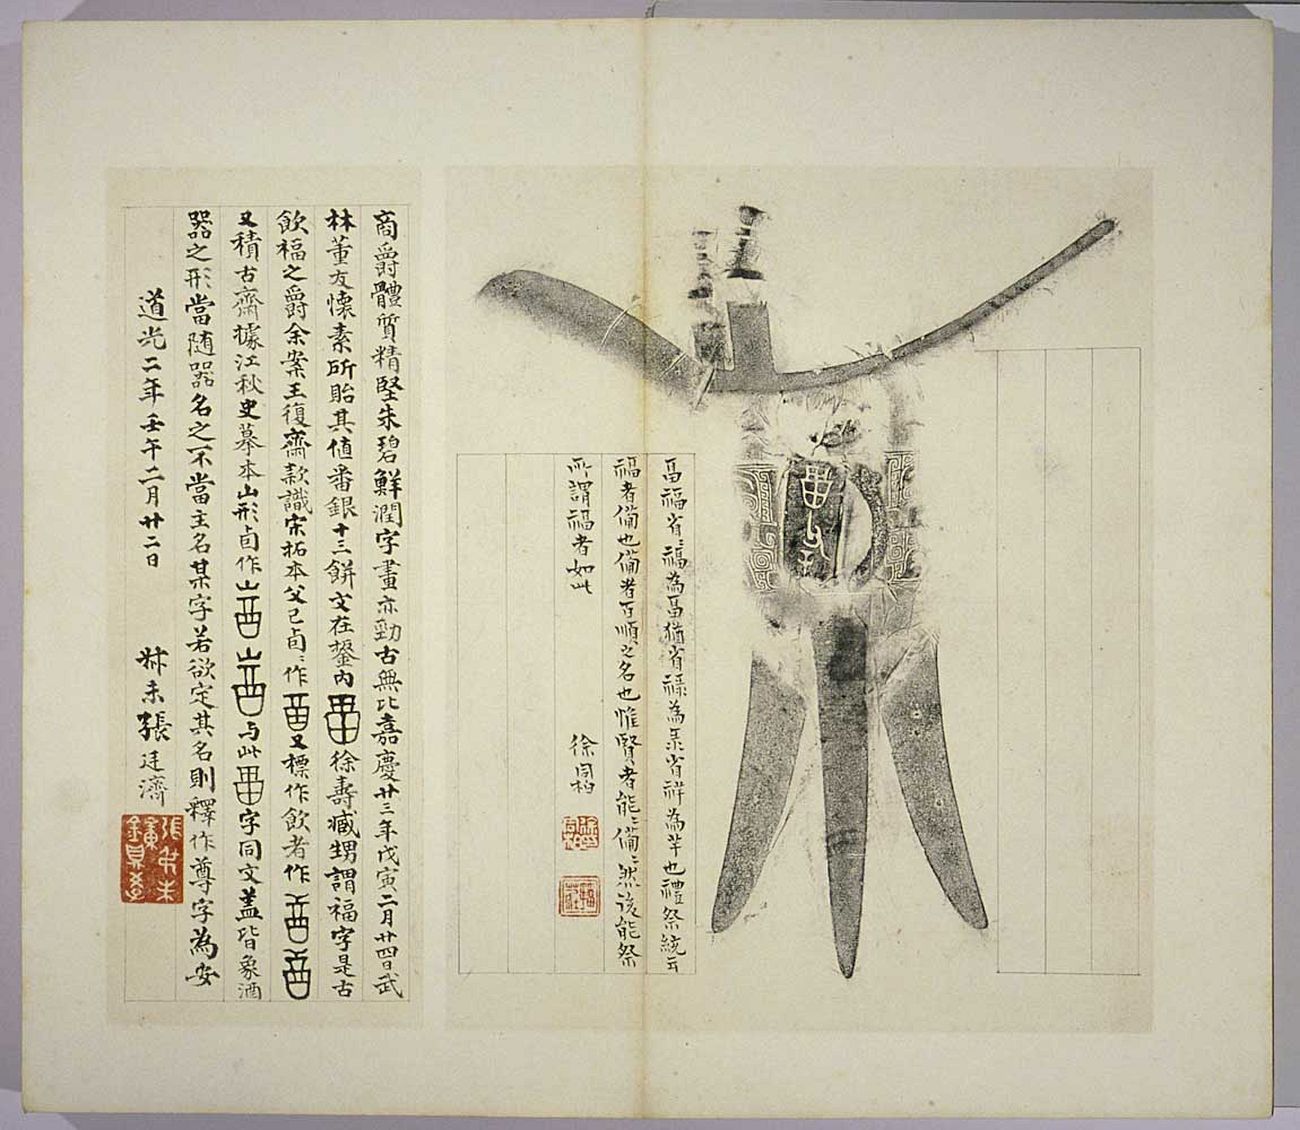 畐福省福為畐猶省祿為彔省祥為羊也禮祭統云
福者備也備者百順之名也惟賢者能備備然後能祭
所謂福者如此
徐同柏
商爵體質精堅朱碧鮮潤字畫亦勁古無比嘉慶廿三年戊寅二月廿四日武
林董友懷素所貽其值番銀十三餅文在鋬内徐壽臧甥謂福字是古
飲福之爵余案王復齋款識宋拓本父己卣卣作又標作飲者作
又積古齋據江秋史摹本山形卣作山山与此字同文蓋皆象酒
器之形當随器名之不當主名某字若欲定其名則釋作尊字為安
道光二年壬午二月廿二日 叔未張廷濟